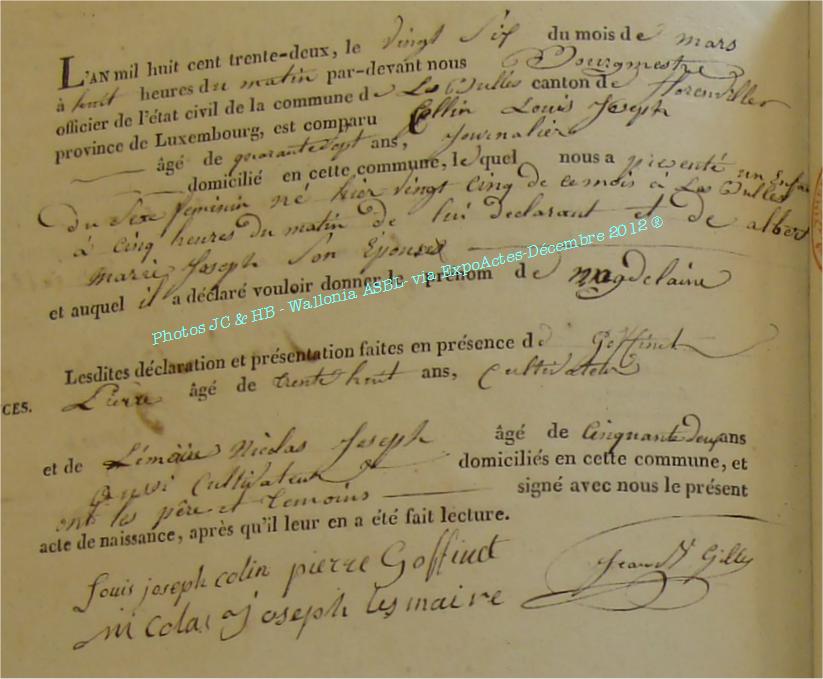 L'AN mil huit cent trente-deux, le vingt Six du mois de mars
à huit heures du matin par-devant nous Bourgmestre
officier de l'état civil de la commune de Les Bulles canton de florenviller
province de Luxembourg, est comparu Collin Louis Joseph
âgé de quarante sept ans, Journalier
domicilié en cette commune, lequel nous a présenté un Enfant
du Sexe féminin né hier vingt cinq de ce mois à Les Bulles
à cinq heures du matin de lui déclarant et de albert
marie Joseph Son Épouse
et auquel il a déclaré vouloir donner le prénom de magdelaine
Photos JC & HB - Wallonia ASBL- via ExpoActes-Décembre 2012 ®
Lesdites déclaration et présentation faites en présence de Goffinet
CES. Pierre âgé de trente huit ans, Cultivateur
et de Lémaire Nicolas Joseph âgé de Cinquante deux ans
aussi Cultivateur domiciliés en cette commune, et
ont les père et temoins signé avec nous le présent
acte de naissance, après qu'il leur en a été fait lecture.
louis joseph colin pierre Goffinet Jean Gilles
nicolas joseph lesmaire